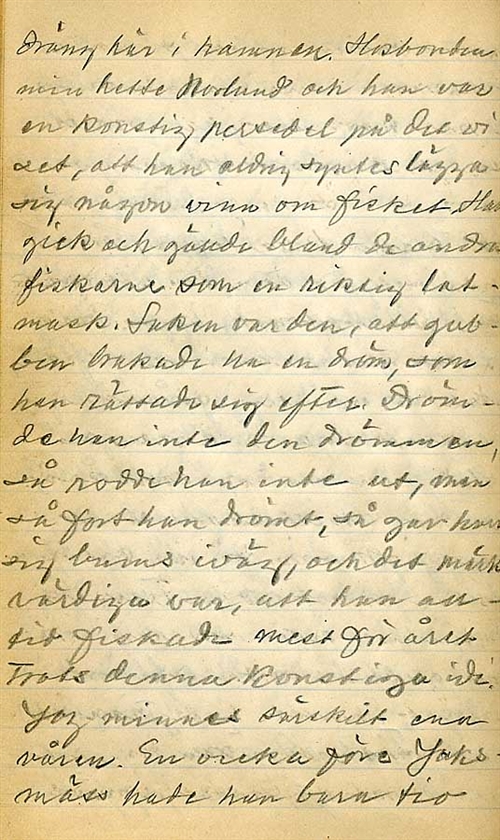 dräng här i hamnen. Hosbonden
min hette Norlund och han var
en konstig persedel på det vi
set, att han aldrig syntes lägga
sig någon vinn om fisket. Han
gick och gäude bland de andra
fiskarne som en riktig lat-
mask. Saken var den, att gub-
ben brukade ha en dröm, som
han rättade sig efter. Dröm-
de han inte den drömmen,
så rodde han inte ut, men
så fort han drömt, så gav han
sig bums iväg, och det märk
värdiga var, att han all-
tid fiskade mest för året
trots denna konstiga idé.
Jag minnes särskilt ena
våren. En vecka före Jaks-
mäss hade han bara tio